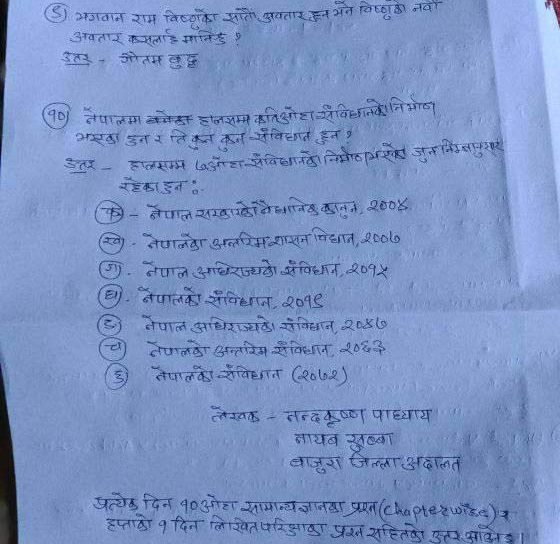 ९) भगवान राम विष्णुको सातौं अवतार हुन् भने विष्णुको नवौं
अवतार कसलाई मानिन्छ ?
उत्तर - गौतम बुद्ध
१०) नेपालमा हालसम्म कतिओटा संविधानको निर्माण
भएका छन् र ति कुन कुन संविधान हुन् ?
उत्तर - हालसम्म ७ ओटा संविधानको निर्माण भएको जुन निम्नानुसार
रहेका छन् :-
क - नेपाल सरकारको वैधानिक कानुन, २००४
ख - नेपालको अन्तरिम शासन विधान, २००७
ग - नेपाल अधिराज्यको संविधान, २०१५
घ - नेपालको संविधान, २०१९
ङ नेपाल अधिराज्यको संविधान, २०४७
च नेपालको अन्तरिम संविधान, २०६३
छ नेपालको संविधान (२०७२)
लेखक - नन्दकृष्ण पाध्याय
नायब सुब्बा
बाजुरा जिल्ला अदालत
प्रत्येक दिन १० ओटा सामान्य ज्ञानका प्रश्न (chapterwise) र
हप्ताको १ दिन लिखित परिक्षाका प्रश्न सहितको उत्तर